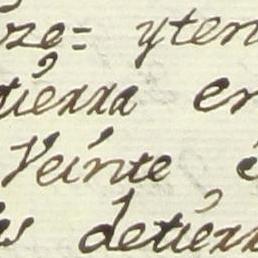 ze= yten
tierra en
Veinte
detierr